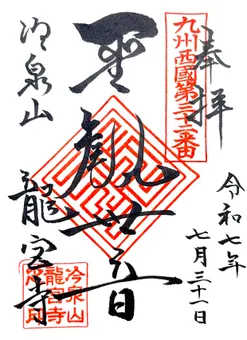 奉拝
令和七年
七月三十一日
九州西國第三十二番
聖観世音
冷泉山
龍宮寺
冷泉山
龍宮寺